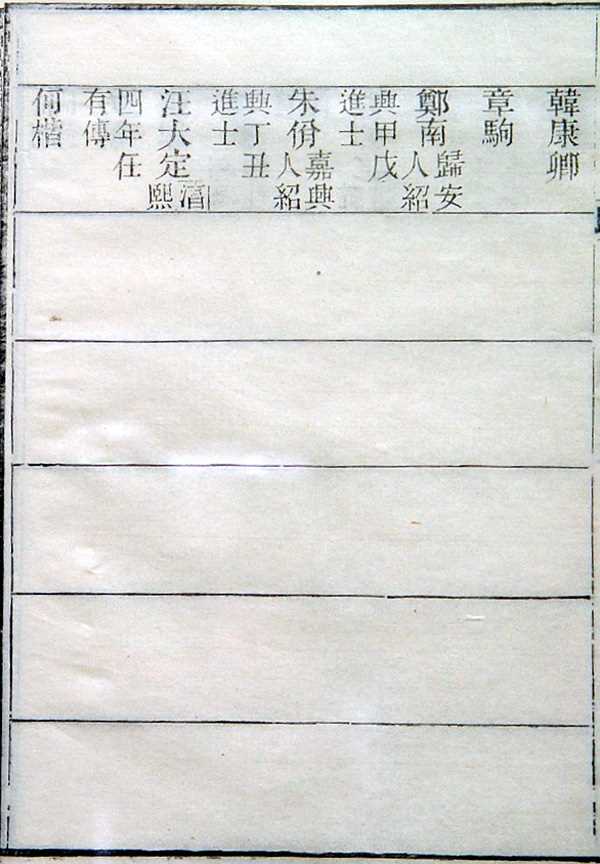 韓康卿
章駒
鄭南歸安人紹
興甲戌進士
朱佾嘉興人紹
興丁丑進士
汪大定湻熙
四年任有傳
何楷